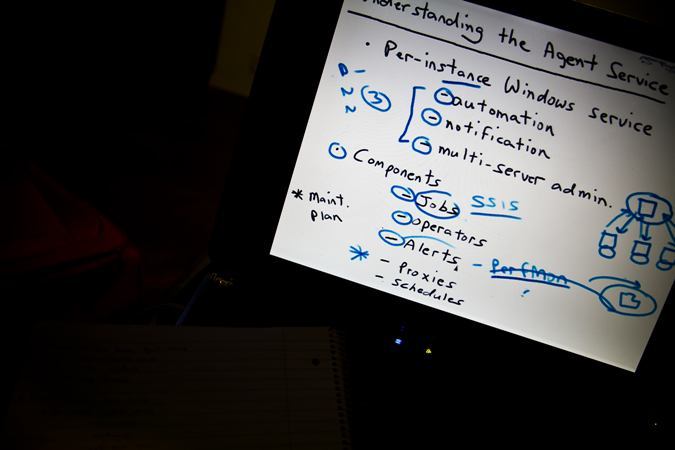 Understanding the Agent Service
• Per-instance Windows service
3
- automation
- notification
- multi-server admin.
• Components
- Jobs SSIS
* Maint. plan
- operators
- Alerts - PerfMon
* - Proxies
- schedules